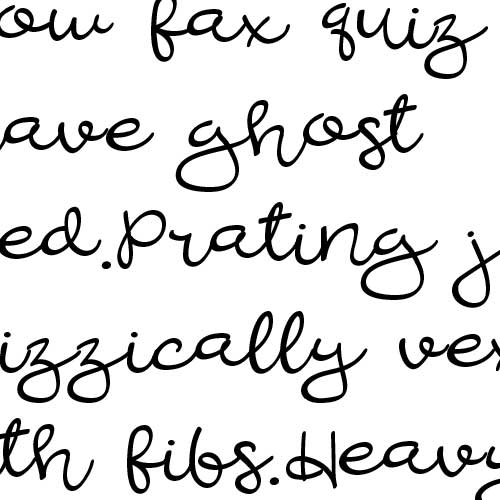 ow fax quiz
ave ghost
ed.Prating j
izzically vex
th fibs.Heavy